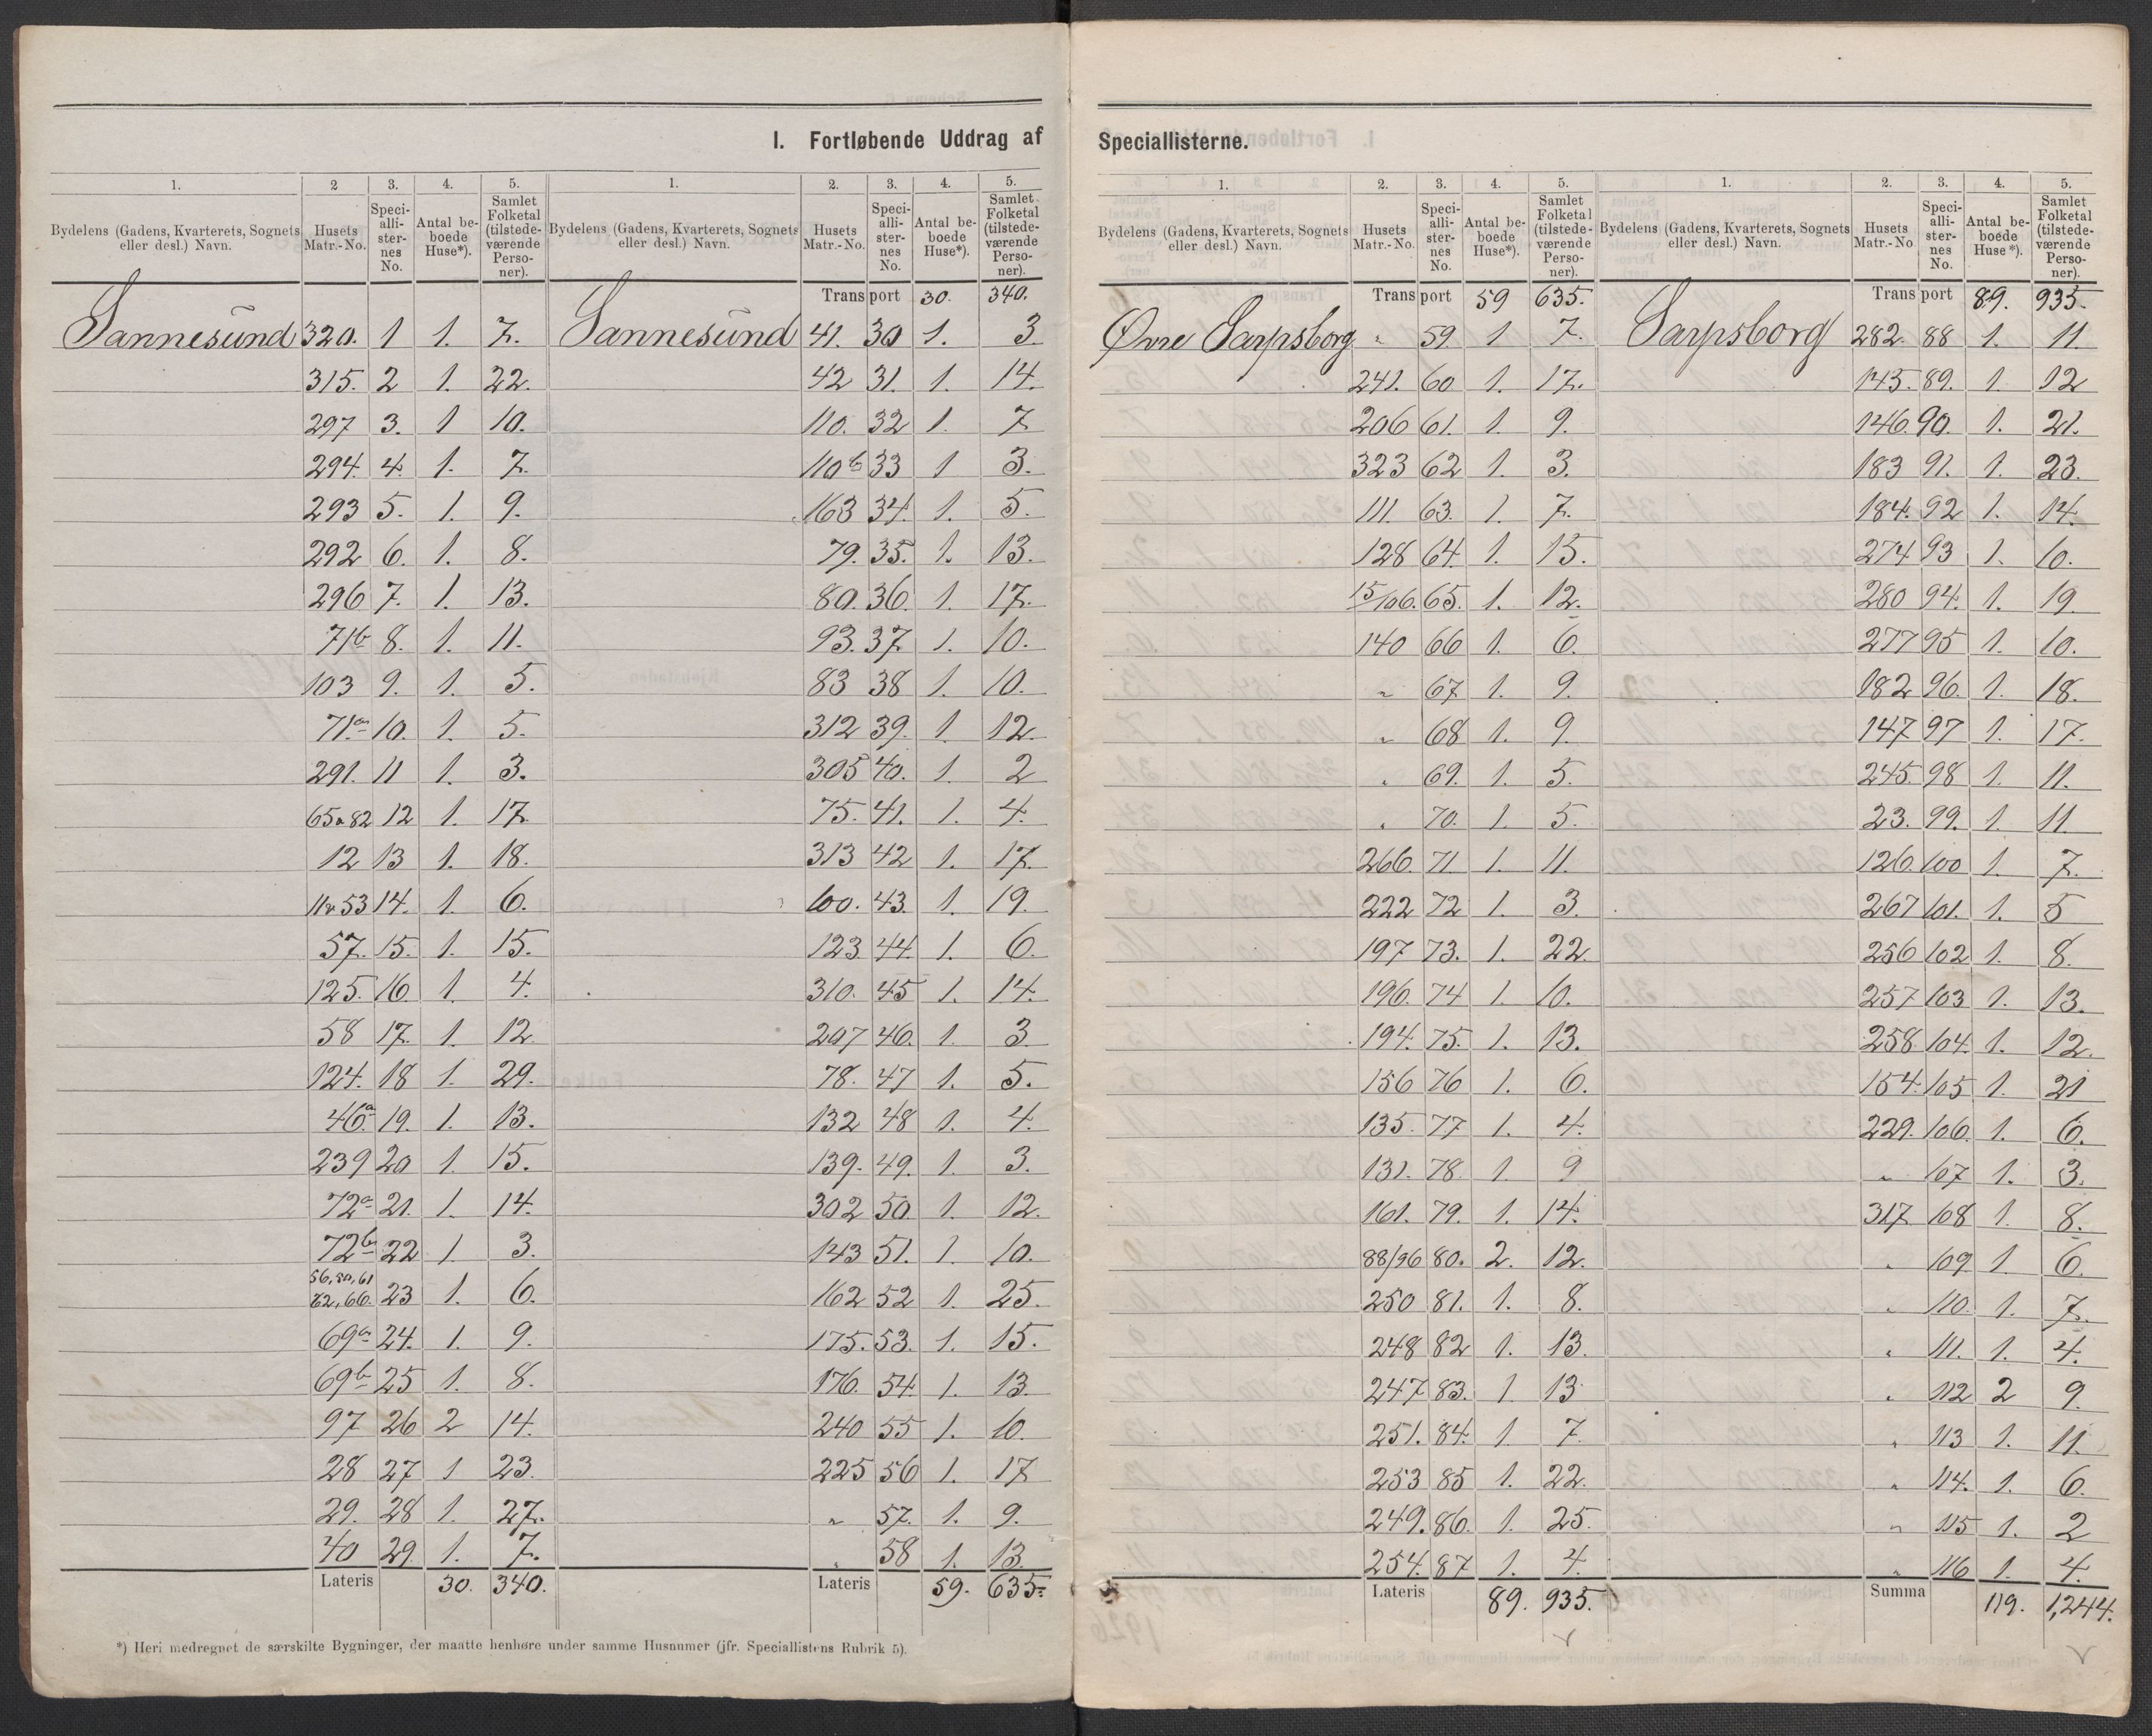 I. Fortløbende Uddrag af Speciallisterne.
1. 2 3. 4. 5.
Bydelens (Gadens, Kvarterets, Sognets eller desl.) Navn. Husets Matr.-No. Speciallisternes No. Antal beboede Huse*). Samlet Folketal (tilstedeværende Personer).
Sannesund 320. 1 1. 7.
315. 2 1. 22.
297 3. 1 10.
294. 4. 1. 7.
293 5. 1. 9.
292 6. 1. 8.
296 7. 1. 13.
71b 8. 1. 11.
103 9. 1. 5.
71a 10. 1. 5.
291. 11 1. 3.
65a82 12 1. 17.
12 13 1. 18.
11a53 14. 1. 6.
57. 15. 1. 15.
125. 16. 1. 4.
58 17. 1. 12.
124. 18 1. 29.
46a 19. 1. 13.
239 20 1. 15.
72a 21. 1. 14.
72b 22 1 3.
56, 50, 61
62, 66. 23 1. 6.
69a 24. 1. 9.
69b 25 1. 8.
97 26 2 14.
28 27 1 23.
29. 28 1. 27.
40 29. 1. 7.
Lateris 30. 340.
1. 2. 3. 4. 5.
Bydelens (Gadens, Kvarterets, Sognets eller desl.) Navn. Husets Matr.-No. Speciallisternes No. Antal beboede Huse*). Samlet Folketal (tilstedeværende Personer).
Transport 30. 340.
Sannesund 41. 30 1. 3
42 31. 1. 14.
110. 32 1. 7
110b 33 1 3.
163 34. 1. 5.
79. 35. 1. 13.
80. 36. 1. 17.
93. 37. 1. 10.
83 38 1. 10.
312 39. 1. 12.
305 40. 1. 2
75. 41. 1. 4.
313 42 1. 17.
100. 43. 1. 19.
123 44. 1. 6.
310. 45 1. 14.
297 46. 1. 3
78. 47 1. 5.
132 48 1. 4.
139. 49. 1. 3.
302 50. 1. 12.
143 51. 1. 10.
162 52 1. 25.
175. 53. 1. 15.
176. 54. 1. 13.
240 55 1. 10.
225 56 1. 17
" 57. 1. 9.
" 58 1. 13.
Lateris 59. 635.
*) Heri medregnet de særskilte Bygninger, der maatte henhøre under samme Husnumer (jfr. Speciallistens Rubrik 5).
1. 2. 3. 4. 5.
Bydelens (Gadens, Kvarterets, Sognets eller desl.) Navn. Husets Matr.-No. Speciallisternes No. Antal beboede Huse*). Samlet Folketal (tilstedeværende Personer).
Transport 59 635.
Øvre Sarpsborg " 59. 1 7.
241. 60. 1. 17.
206 61. 1. 9.
323 62 1. 3.
111. 63. 1. 7.
128 64. 1. 15.
15/106. 65. 1. 12.
140 66 1. 6.
" 67 1. 9.
" 68 1. 9.
" 69. 1. 5.
" 70. 1. 5.
266. 71. 1. 11.
222 72 1. 3.
197 73. 1. 22.
196. 74 1. 10.
194. 75. 1. 13.
156 76 1. 6.
135. 77 1. 4.
131. 78. 1. 9
161. 79. 1. 14.
88/96 80. 2. 12.
250 81. 1. 8.
248 82 1. 13.
247 83. 1. 13
251. 84. 1 7.
253 85 1. 22.
249. 86. 1. 25.
254. 87 1. 4.
Lateris 89. 935.
1. 2. 3. 4. 5.
Bydelens (Gadens, Kvarterets, Sognets eller desl.) Navn. Husets Matr.-No Speciallisternes No. Antal beboede Huse*). Samlet Folketal (tilstedeværende Personer).
Transport 89. 935.
Sarpsborg 282. 88 1. 11.
145. 89. 1. 12
146. 90. 1. 21.
183 91. 1. 23.
184. 92 1. 14.
274 93 1. 10.
280 94. 1. 19.
277 95 1. 10.
182 96. 1. 18.
147 97 1. 17.
245. 98 1. 11.
23. 99. 1. 11.
126. 100 1. 7.
267 101. 1. 5
256 102 1. 8.
257 103 1. 13.
258 104. 1. 12.
154. 105 1. 21
229. 106. 1. 6.
" 107 1. 3.
317 108 1. 8.
" 109 1. 6.
" 110. 1. 7.
" 111. 1. 4.
" 112 2 9.
" 113 1. 11.
" 114. 1. 6.
" 115 1. 2
" 116 1. 4.
Summa 119. 1,244.